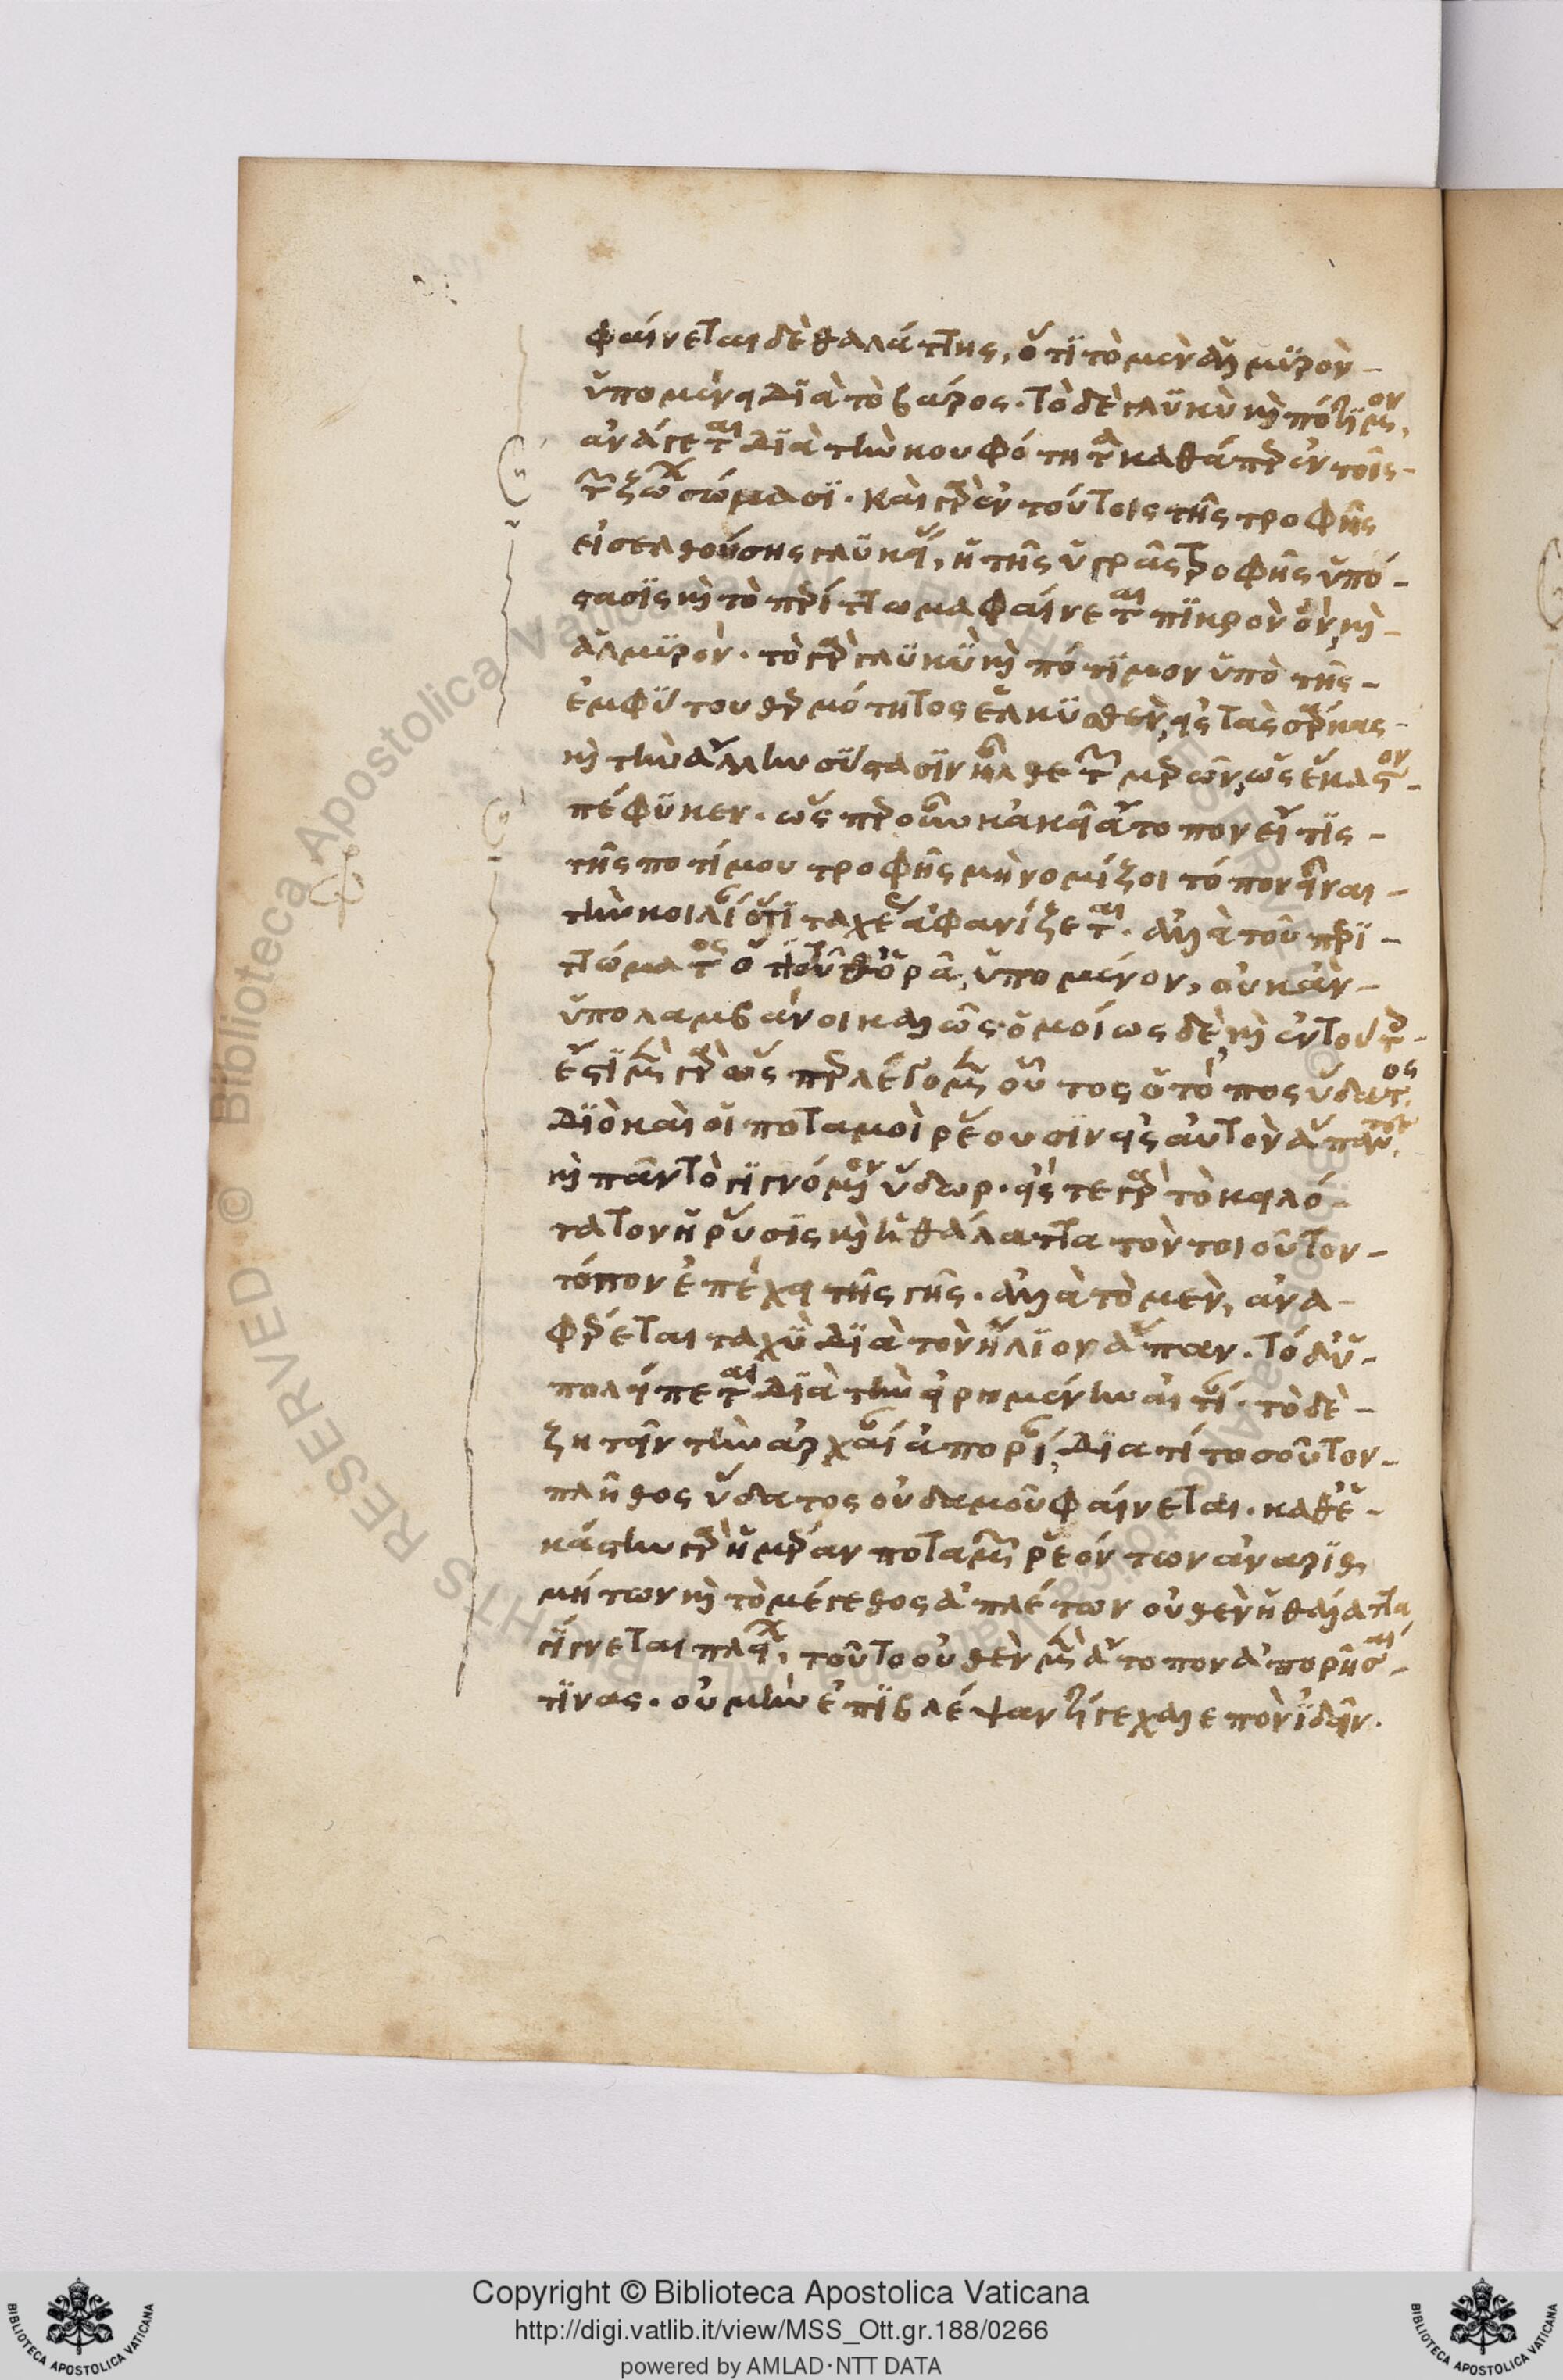 φαίνεται δὲ θαλάττης, ὅτι τὸ μὲν ἁλμυρὸν
ὑπομένει διὰ τὸ βάρος· τὸ δὲ γλυκὺ καὶ πότιμον,
ἀνάγεται διὰ τὴν κουφότητα καθάπερ ἐν τοῖς
τῶν ζώων σώμασι· καὶ γὰρ ἐν τούτοις τῆς τροφῆς
εἰσελθούσης γλυκείας, ἡ τῆς ὑγρᾶς τροφῆς ὑπό-
στασις καὶ τὸ περίττωμα φαίνεται πικρὸν ὂν, καὶ
ἁλμυρόν· τὸ γὰρ γλυκὺ καὶ πότιμον ὑπὸ τῆς
ἐμφύτου θερμότητος ἑλκυσθὲν, εἰς τὰς σάρκας
καὶ τὴν ἄλλην σύστασιν ἦλθε τῶν μερῶν, ὡς ἕκαστον
πέφυκεν· ὥσπερ οὖν κἀκεῖ ἄτοπον εἴ τις
τῆς ποτίμου τροφῆς μὴ νομίζοι τόπον εἶναι
τὴν κοιλίαν ὅτι ταχέως ἀφανίζεται· ἀλλὰ τοῦ περι-
ττώματος ὅτι τοῦθ' ὁρᾷ, ὑπομένον, οὐκ ἂν
ὑπολαμβάνοι καλῶς· ὁμοίως δὲ, καὶ ἐν τούτοις
ἔστι μὲν γὰρ ὥσπερ λέγομεν οὗτος ὁ τόπος ὕδατος·
διὸ καὶ οἱ ποταμοὶ ῥέουσιν εἰς αὐτὸν ἅπαντες,
καὶ πᾶν τὸ γιγνόμενον ὕδωρ· εἴς τε γὰρ τὸ κοιλό-
τατον ἡ ῥύσις καὶ ἡ θάλαττα τὸν τοιοῦτον
τόπον ἐπέχει τῆς γῆς· ἀλλὰ τὸ μὲν, ἀνα-
φέρεται ταχὺ διὰ τὸν ἥλιον ἅπαν· τὸ δ' ὑ-
πολείπεται διὰ τὴν εἰρημένην αἰτίαν· τὸ δὲ
ζητεῖν τὴν ἀρχαίαν ἀπορίαν, διὰ τί τοσοῦτον
πλῆθος ὕδατος οὐδαμοῦ φαίνεται· καθ' ἑ-
κάστην γὰρ ἡμέραν ποταμῶν ῥεόντων ἀναριθ
μήτων καὶ τὸ μέγεθος ἀπλέτων οὐθὲν ἡ θάλαττα
γίγνεται πλείων, τοῦτο οὐθὲν μὲν ἄτοπον ἀπορῆσαι
τινας· οὐ μὴν ἐπιβλέψαντί γε χαλεπὸν ἰδεῖν.
Copyright © Biblioteca Apostolica Vaticana
http://digi.vatlib.it/view/MSS_Ott.gr.188/0266
powered by AMLAD·NTT DATA